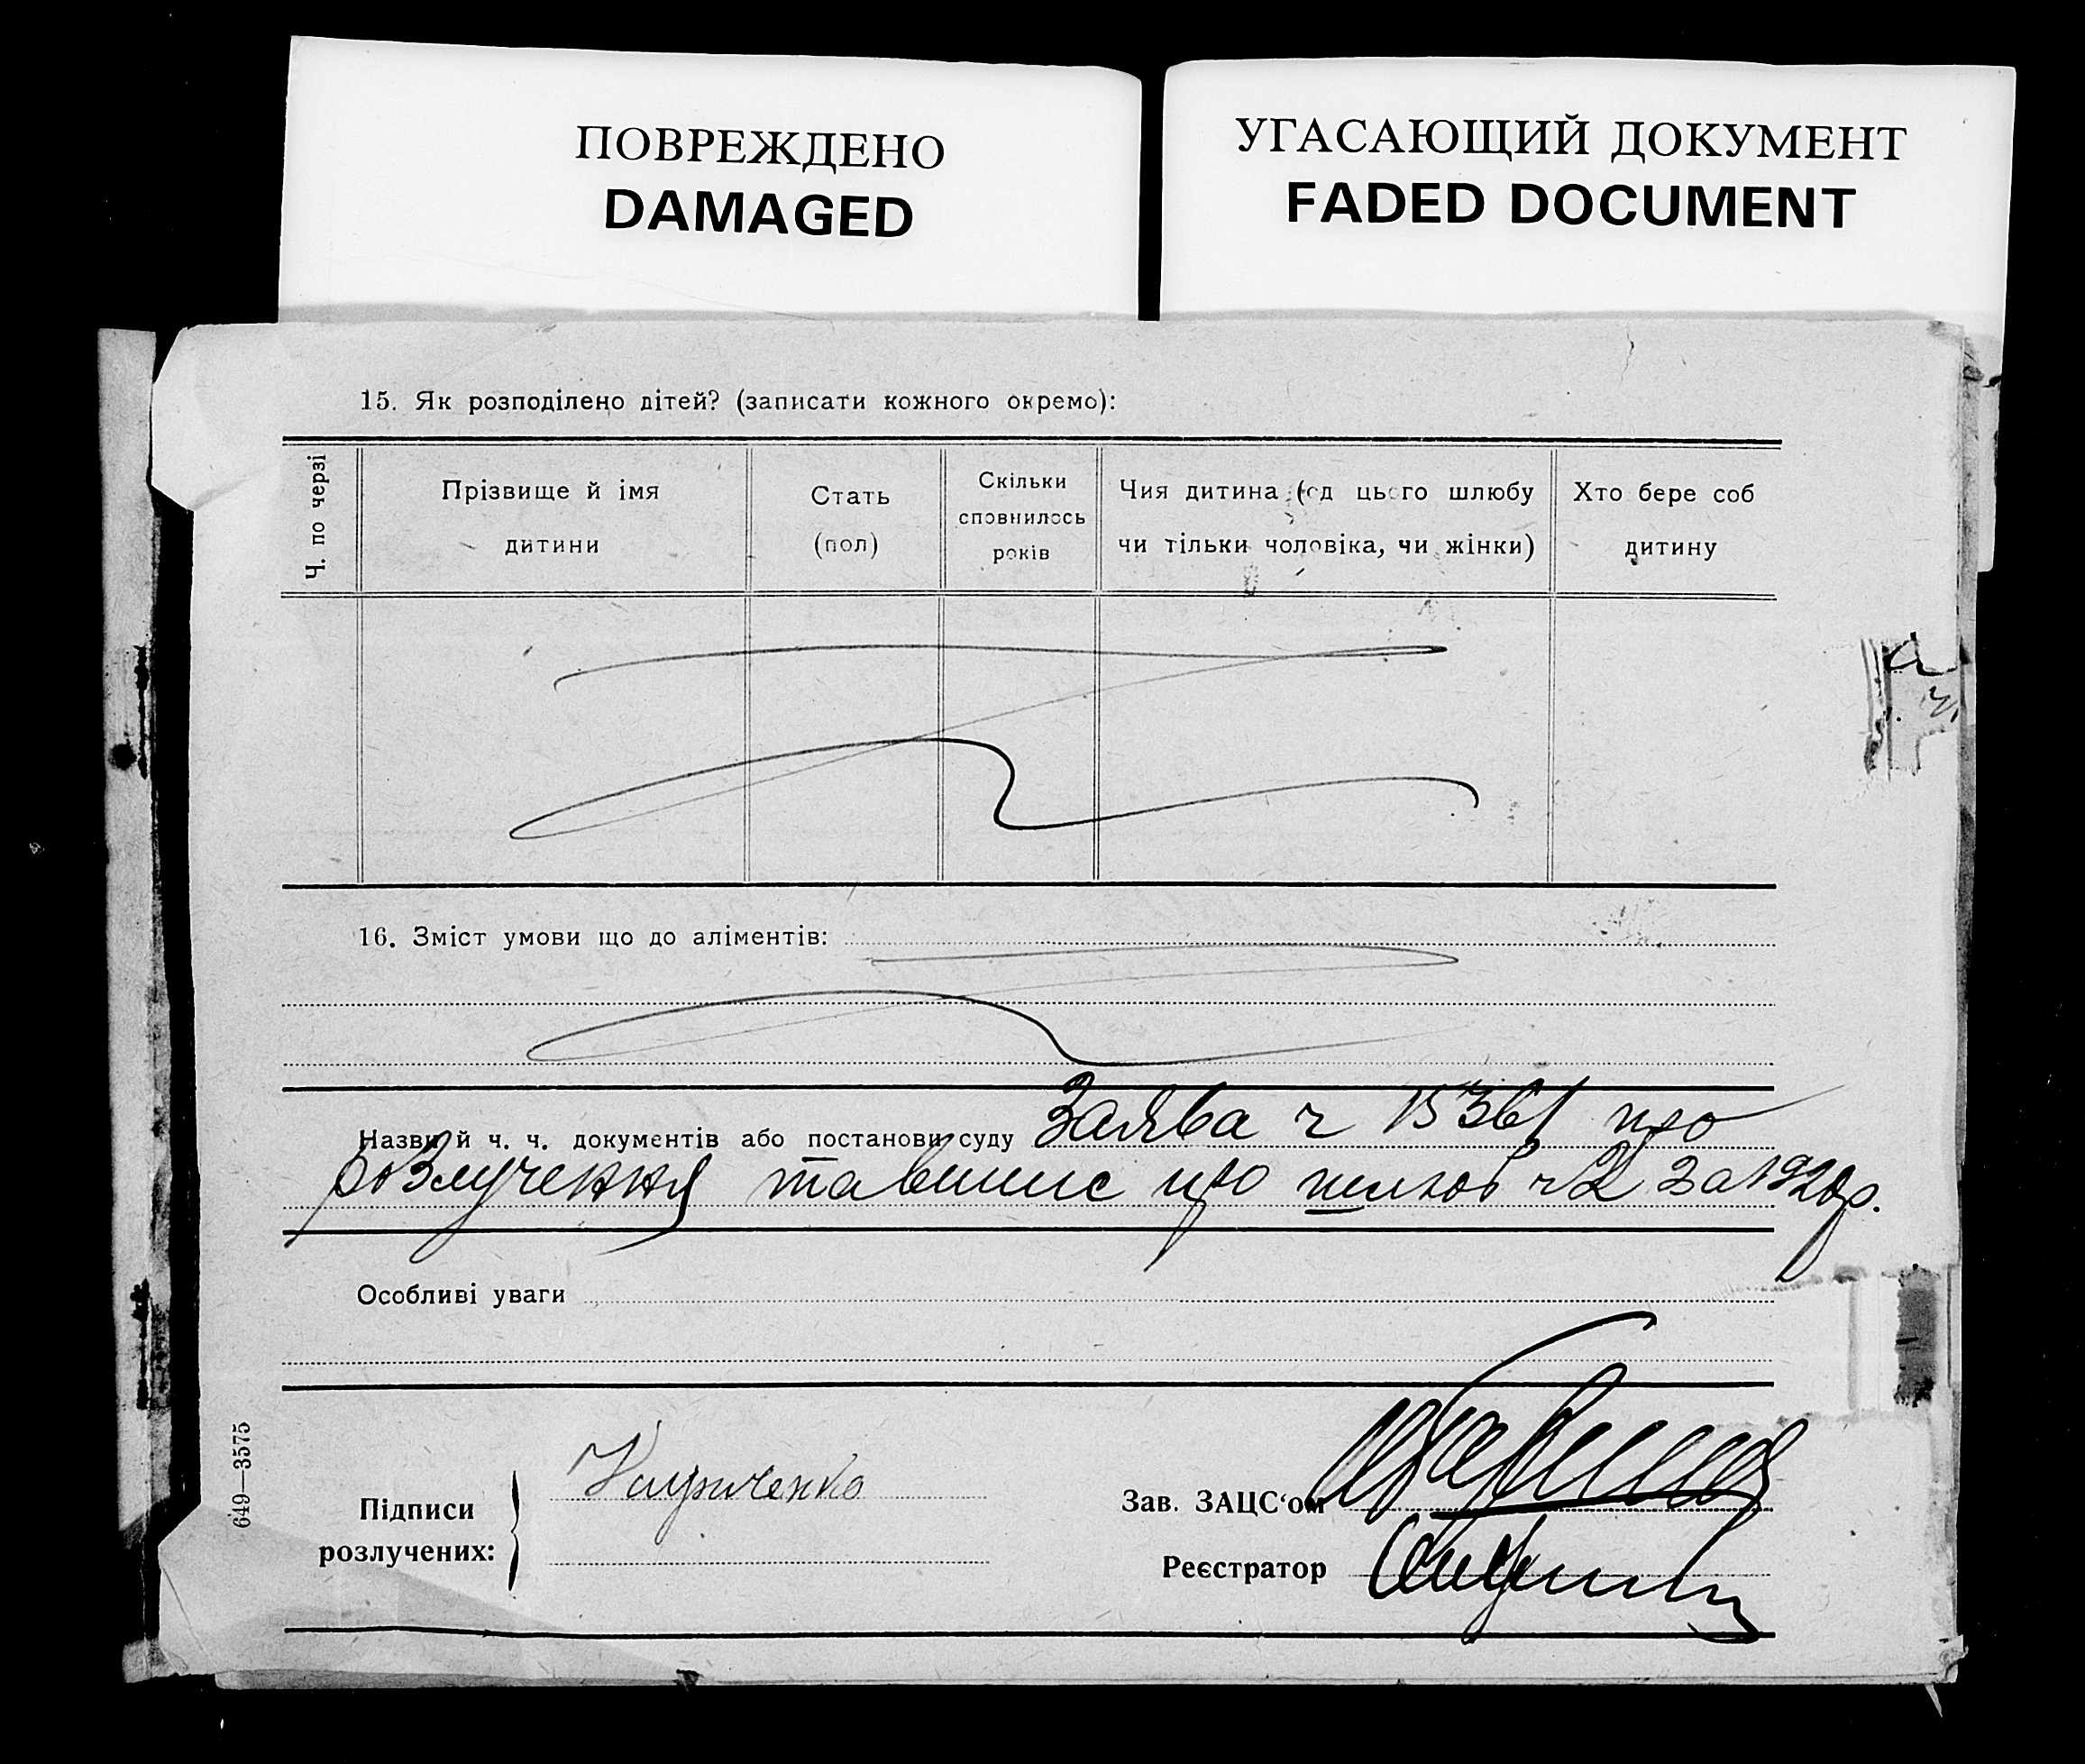 ПОВРЕЖДЕНО
DAMAGED
УГАСАЮЩИЙ ДОКУМЕНТ
FADED DOCUMENT
15. Як розподілено дітей? (записати кожного окремо):
Ч. по черзі
Прізвище й імя
дитини
Стать
(пол)
Скільки
сповнилось
років
Чия дитина (од цього шлюбу
чи тільки чоловіка, чи жінки)
Хто бере соб
дитину
16. Зміст умови що до аліментів:
Назви й ч. ч. документів або постанови суду Заява ч 15361 про
розлучення та випис про шлюб ч 2 за 192 р.
Особливі уваги
649—3575
Підписи
розлучених:
Зав. ЗАЦС‘ом
Реєстратор